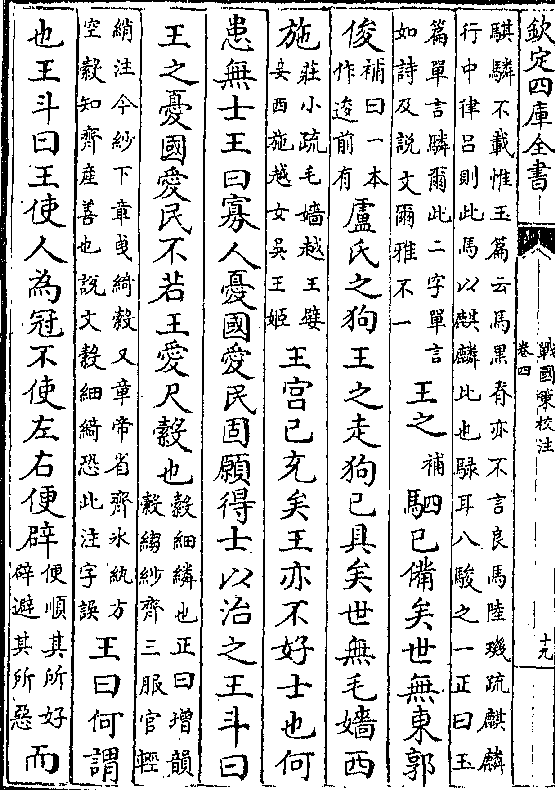 欽定四庫全書
戰國策校注
卷四
十九
騏驎不載惟玉篇云馬黒脊亦不言良馬陸璣疏麒麟
行中律吕則此馬以麒麟比也騄耳八駿之一正曰玉
篇單言驎爾此二字單言
如詩及說文爾雅不一
王之補駟已備矣世無東郭
俊補曰一本
作逡前有
盧氏之狗王之走狗已具矣世無毛嬙西
施莊小疏毛嬙越王嬖
妾西施越女吳王姬
王宮已充矣王亦不好士也何
患無士王曰寡人憂國愛民固願得士以治之王斗曰
王之憂國愛民不若王愛尺縠也縠細繗也正曰增韻
縠縐紗齊三服官輕
綃注今紗下章曳綺縠又章帝省齊氷紈方
空縠知齊産善也說文縠細綺恐此注字誤
王曰何謂
也王斗曰王使人為冠不使左右便辟便順其所好
辟避其所惡
而